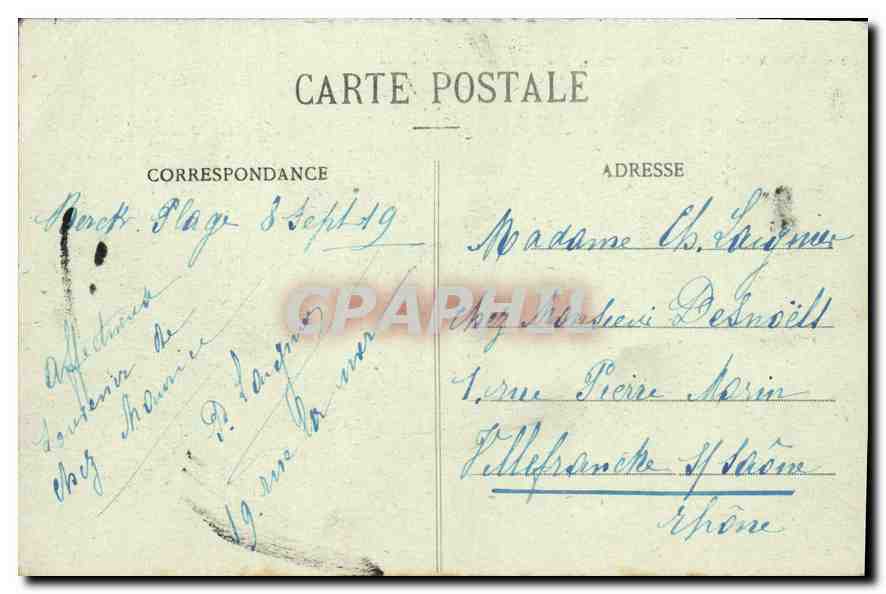 CARTE POSTALE
CORRESPONDANCE
Berck Plage 8 Sept 19
Affectueux
souvenir de
chez Maurice
P. Laignier
19. rue la mer
ADRESSE
Madame Ch. Laignier
chez Monsieur Desnoëls
1. rue Pierre Morin
Villefranche s/ Saône
Rhône
CPAPHIL